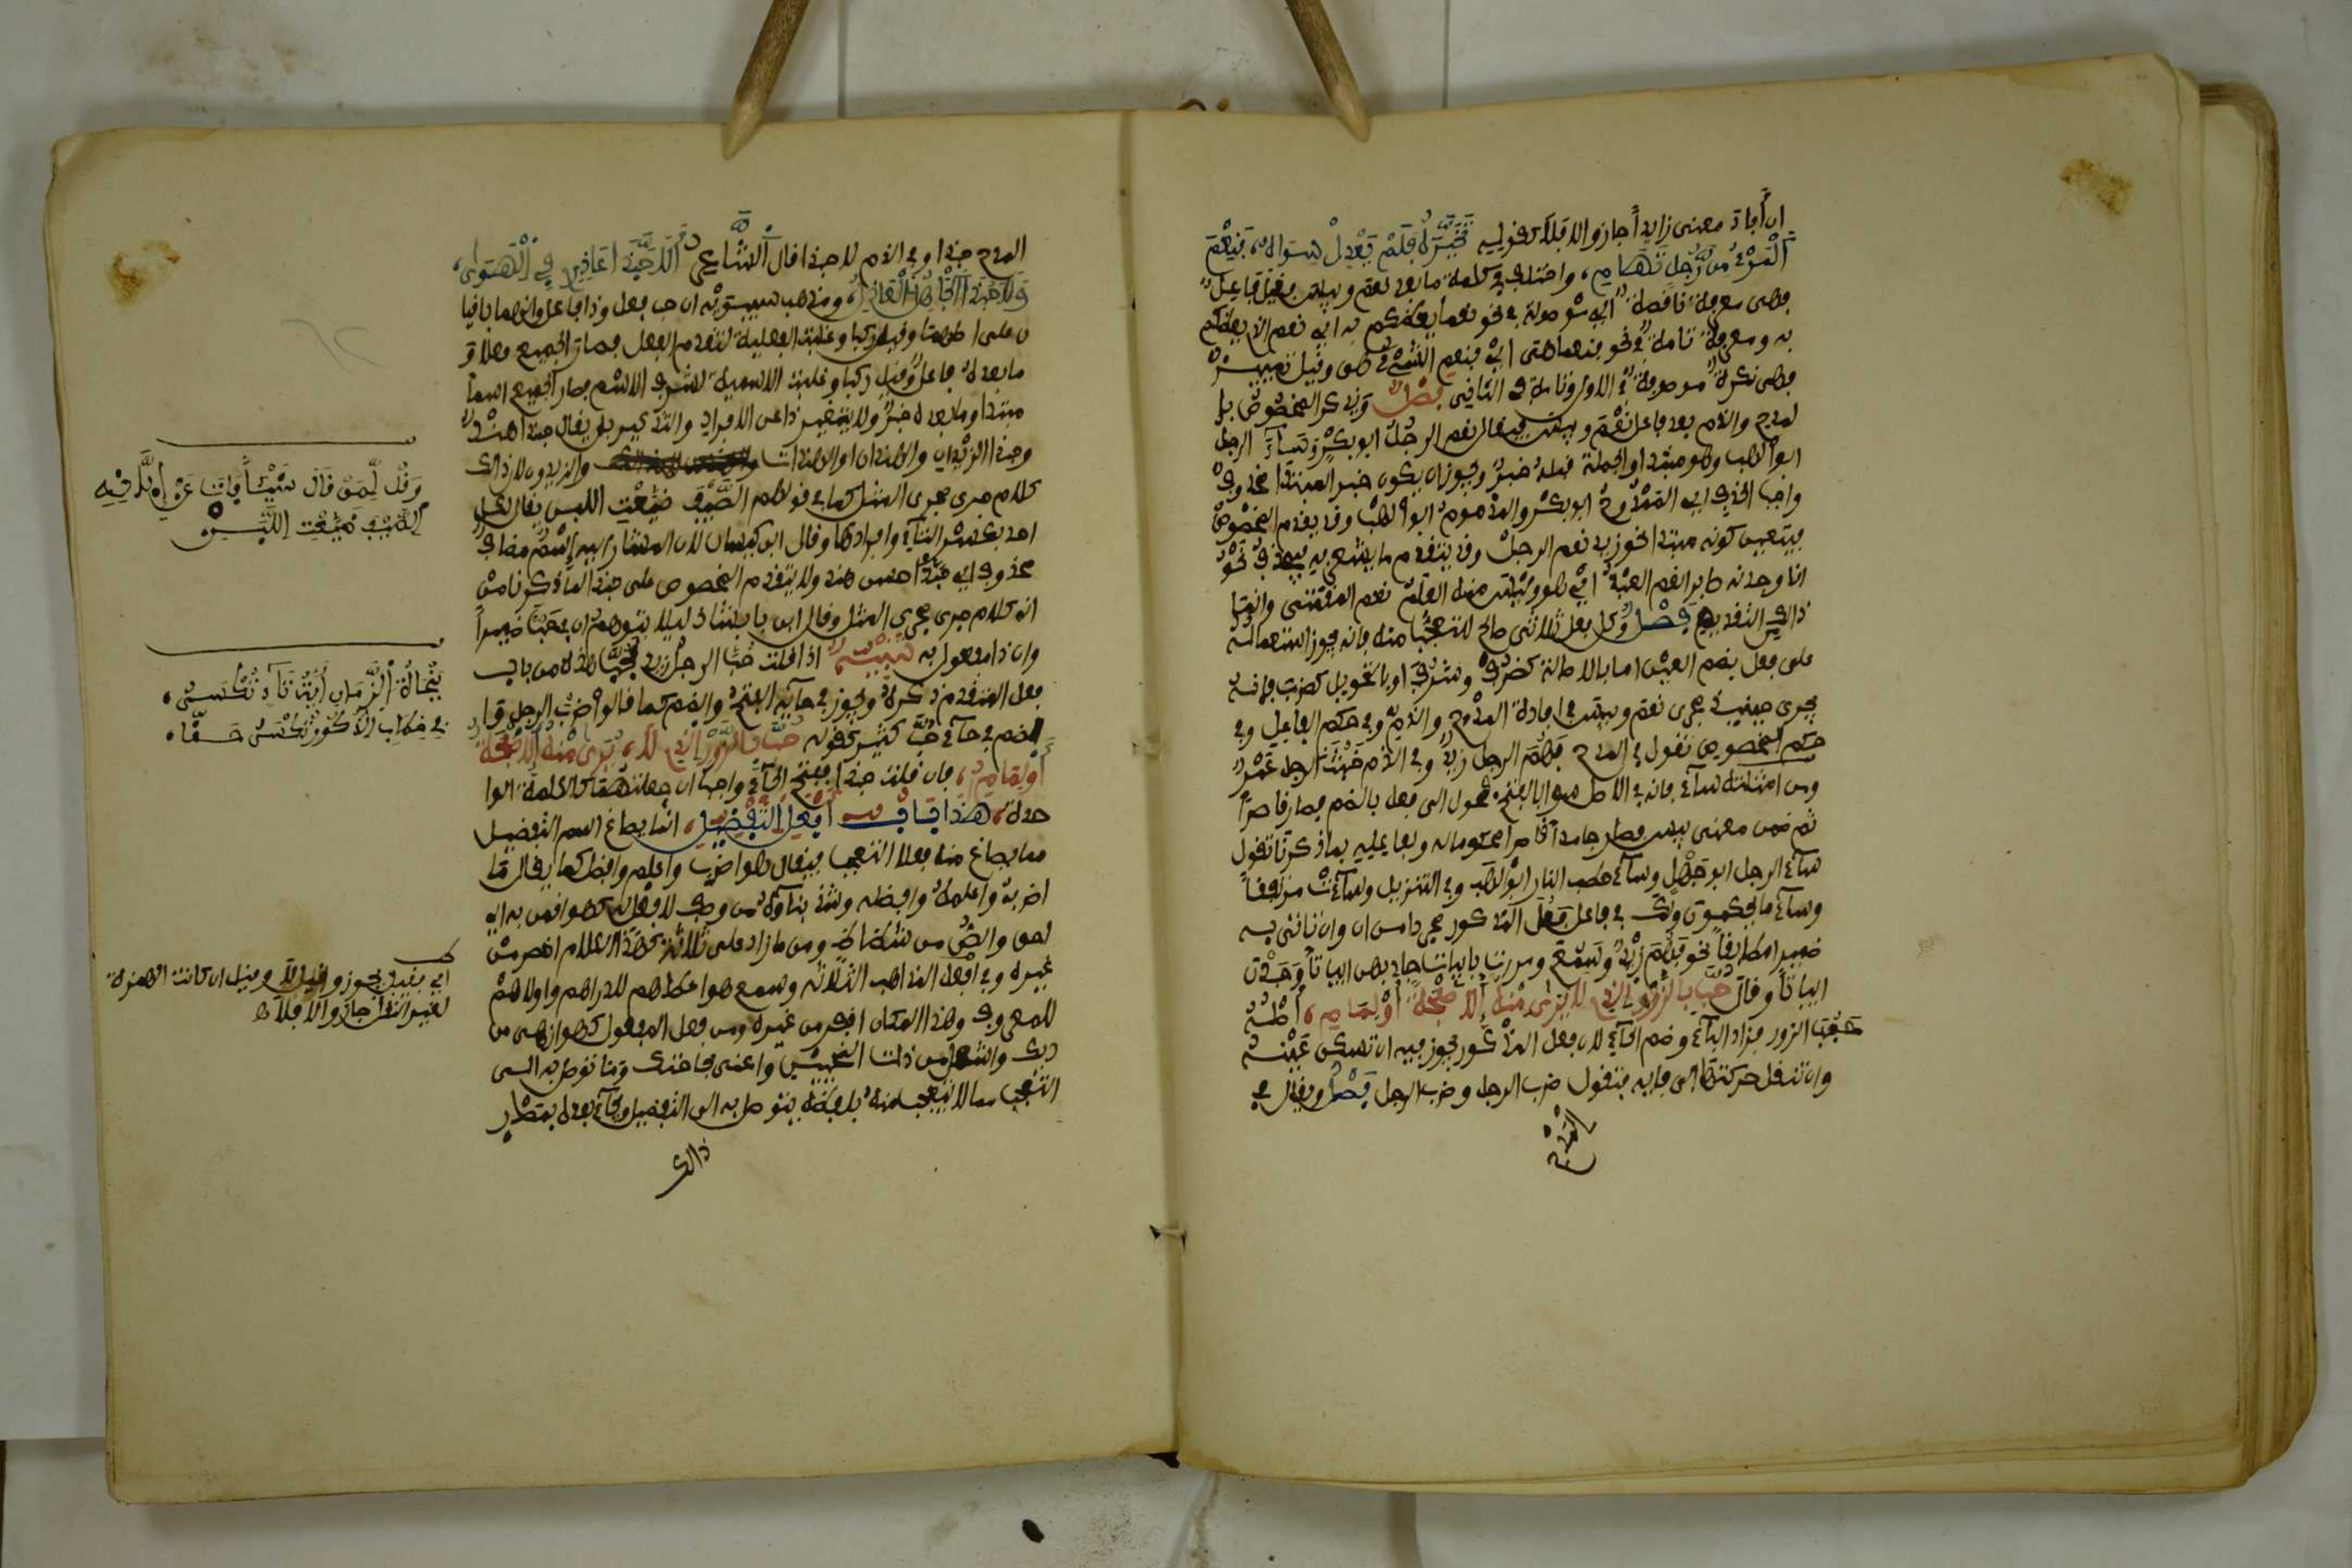 ان أفاد معنى زايدا جاز والا فلا كقوله تَخَيَّرَهُ فَلَمْ يَعْدِلْ سِوَاهُ، فَنِعْمَ
الْمَرْءُ مِن رَّجُلٍ تَهَامِ، واختلف في كلمة ما بعد نعم وبيس فقيل فاعل
فهي معرفة ناقصة أي موصولة في نحو نعما يعظكم به أي نعم الذي يعظكم
به ومعرفة تامة في نحو فنعما هي أي فنعم الشيء هي وقيل تمييز
فهي نكرة موصوفة في الاول وتامة في الثاني فصل ويذكر المخصوص با
لمدح والذم بعد فاعل نعم وبيس فيقال نعم الرجل ابو بكر وساء الرجل
ابو لهب وهو مبتدا والجملة قبله خبر ويجوز ان يكون خبر المبتدا محذوف
واجب الحذف اي الممدوح ابو بكر والمذموم ابو لهب وقد يتقدم المخصوص
فيتعين كونه مبتدا نحو زيد نعم الرجل وقد يتقدم ما يشعر به فيحذف نحو
انا وجدنه صابرا نعم العبد اي هو وليس منه العلم نعم المقتنى وانما
ذالك التقديم فصل وكل فعل ثلاثي صالح للتعجب منه فانه يجوز استعماله
على فعل بضم العين اما بالاصالة كظرف وشرف او بالتحويل كضرب وفهم
يجرى حينيذ مجرى نعم وبيس في افادة المدح والذم وفي حكم الفاعل وفي
حكم المخصوص تقول في المدح فهم الرجل زيد وفي الذم خبث الرجل عمر
ومن امثلته ساء فانه في الاصل سوأ بالفتح فحول الى فعل بالضم فصار قاصرا
ثم ضمن معنى بيس فصار جامدا قاصرا محكوما له وبفاعليه بما ذكرنا تقول
ساء الرجل ابو جهل وساء حطب النار ابو لهب وفي التنزيل وساءت مرتفقا
وساء ما يحكمون ولك في فاعل فعل المذكور مجردا من ان وان تاتي به
ضميرا مطابقا نحو فهم زيد وسمع ومررت بابيات جاد بهن ابياتا وجدن
ابياتا وقال حُبَّ بِالزَّوْرِ الذي لا يُرَى مِنْهُ إِلَّا صَفْحَةٌ أَوْ لِمَامِ، أصله
حبب الزور فزاد الباء وضم الحاء لان فعل المذكور يجوز فيه ان تسكن عينه
وان تنقل حركتها الى فايه فتقول ضرب الرجل وضرب الرجل فصل ويقال في
المدح
المدح حبذا وفي الذم لا حبذا قال الشاعر أَلَا حَبَّذَا عَاذِرِي فِي الْهَوَى،
وَلَا حَبَّذَا الْجَاهِلُ الْعَاذِلُ، ومذهب سيبويه ان حب فعل وذا فاعل وانهما باقيا
ن على اصلهما وقيل ركبا وغلبت الفعلية لتقدم الفعل فصار الجميع فعلا و
ما بعده فاعل وقيل ركبا وغلبت الاسمية لشرف الاسم فصار الجميع اسما
مبتدا وما بعده خبر ولا يتغير ذا عن الافراد والتذكير بل يقال حبذا هند
وحبذا الزيدان والهندان او الهندات والزيدون لان ذالك
كلام جرى مجرى المثل كما في قولهم الصيف ضيعت اللبن يقال لكل
احد بكسر التاء وافرادها وقال ابن كيسان لان المشار اليه اسم مضاف
محذوف اي حبذا حسن هند ولا يتقدم المخصوص على حبذا لما ذكرنا من
انه كلام جرى مجرى المثل وقال ابن بابشاذ ليلا يتوهم ان في حب ضميرا
وان ذا مفعول به تنبيه اذا قلت حب الرجل زيد فحب هذه من باب
فعل المتقدم ذكره ويجوز في حايه الفتح والضم كما قالوا ضرب الرجل وا
لضم في حاء حب كثير كقوله حُبَّ بِالزَّوْرِ الذي لا، يُرَى مِنْهُ إِلَّا صَفْحَةٌ
أَوْ لِمَامِ، فان قلت حبذا ففتح الحاء واجب ان جعلتهما كالكلمة الوا
حدة، هَذَا بَابُ أَفْعَلِ التَّفْضِيلِ، انما يصاغ اسم التفضيل
مما يصاغ منه فعلا التعجب فيقال هو اضرب واعلم وافضل كما يقال ما
اضربه واعلمه وافضله وشذ بناؤه من وصف لا فعل له كهو اقمن به اي
احق والص من شظاظ ومن ما زاد على ثلاثة كهذا الكلام اخصر من
غيره وفي افعل المذاهب الثلاثة وسمع هو اعطاهم للدراهم واولاهم
للمعروف وهذا المكان اقفر من غيره ومن فعل المفعول كهو ازهى من
ديك واشغل من ذات النحيين واعنى بحاجتك وما توصل به الى
التعجب مما لا يتعجب منه بلفظه يتوصل به الى التفضيل ويجاء بعده بمصدر
ذالك
وَقُل لِّمَنْ قَالَ شَيْئاً فَاتَ عَنْ إِبَّانِهِ
الصَّيْفَ ضَيَّعْتِ اللَّبَنَ
في خطاب الذكور تكسر حقا،
اي فقيل يجوز وقيل لا وقيل ان كانت الهمزة
لغير النقل جاز والا فلا